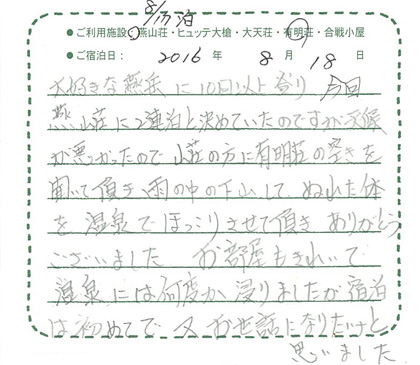 8/17泊
●ご利用施設：燕山荘・ヒュッテ大槍・大天荘・有明荘・合戦小屋
●ご宿泊日： 2016 年 8 月 18 日
大好きな燕岳に10回以上登り 今回
燕山荘に2連泊と決めていたのですが天候
が悪かったので 山荘の方に有明荘の空きを
聞いて頂き、雨の中の下山して ぬれた体
を 温泉で ほっこりさせて頂き ありがとう
ございました お部屋もきれいで
温泉には何度か浸りましたが宿泊
は初めてで 又 お世話になりたいと
思いました